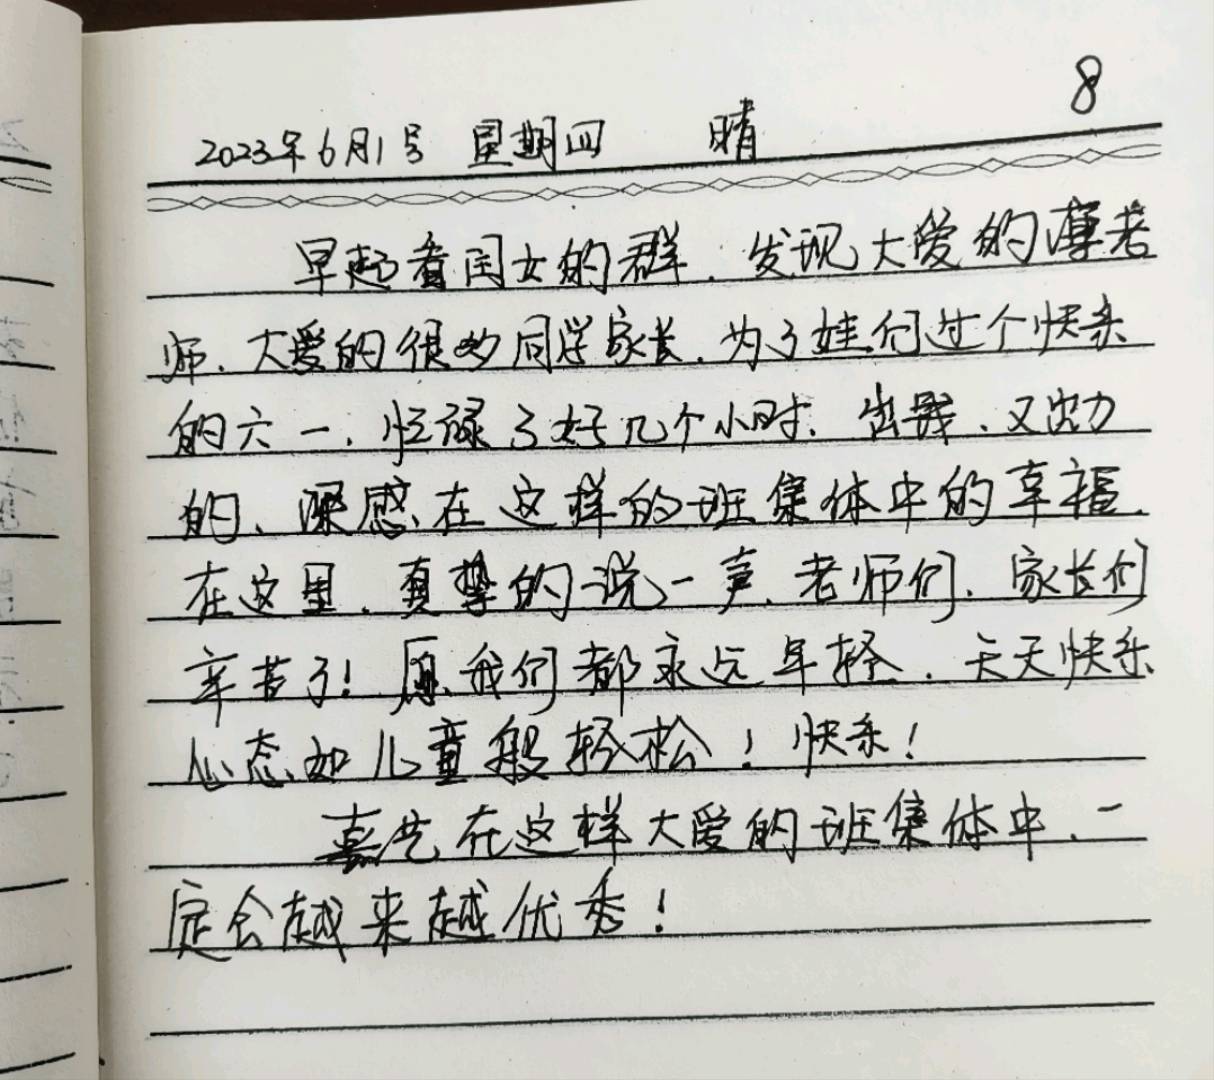 8
2023年6月1号 星期四 晴
早起看闺女的群，发现大爱的薄老
师、大爱的很多同学家长，为了娃们过个快乐
的六一，忙碌了好几个小时、出钱、又出力
的、深感在这样的班集体中的幸福，
在这里，真挚的说一声，老师们，家长们
辛苦了！愿我们都永远年轻，天天快乐
心态如儿童般轻松！快乐！
嘉艺在这样大爱的班集体中，一
定会越来越优秀！